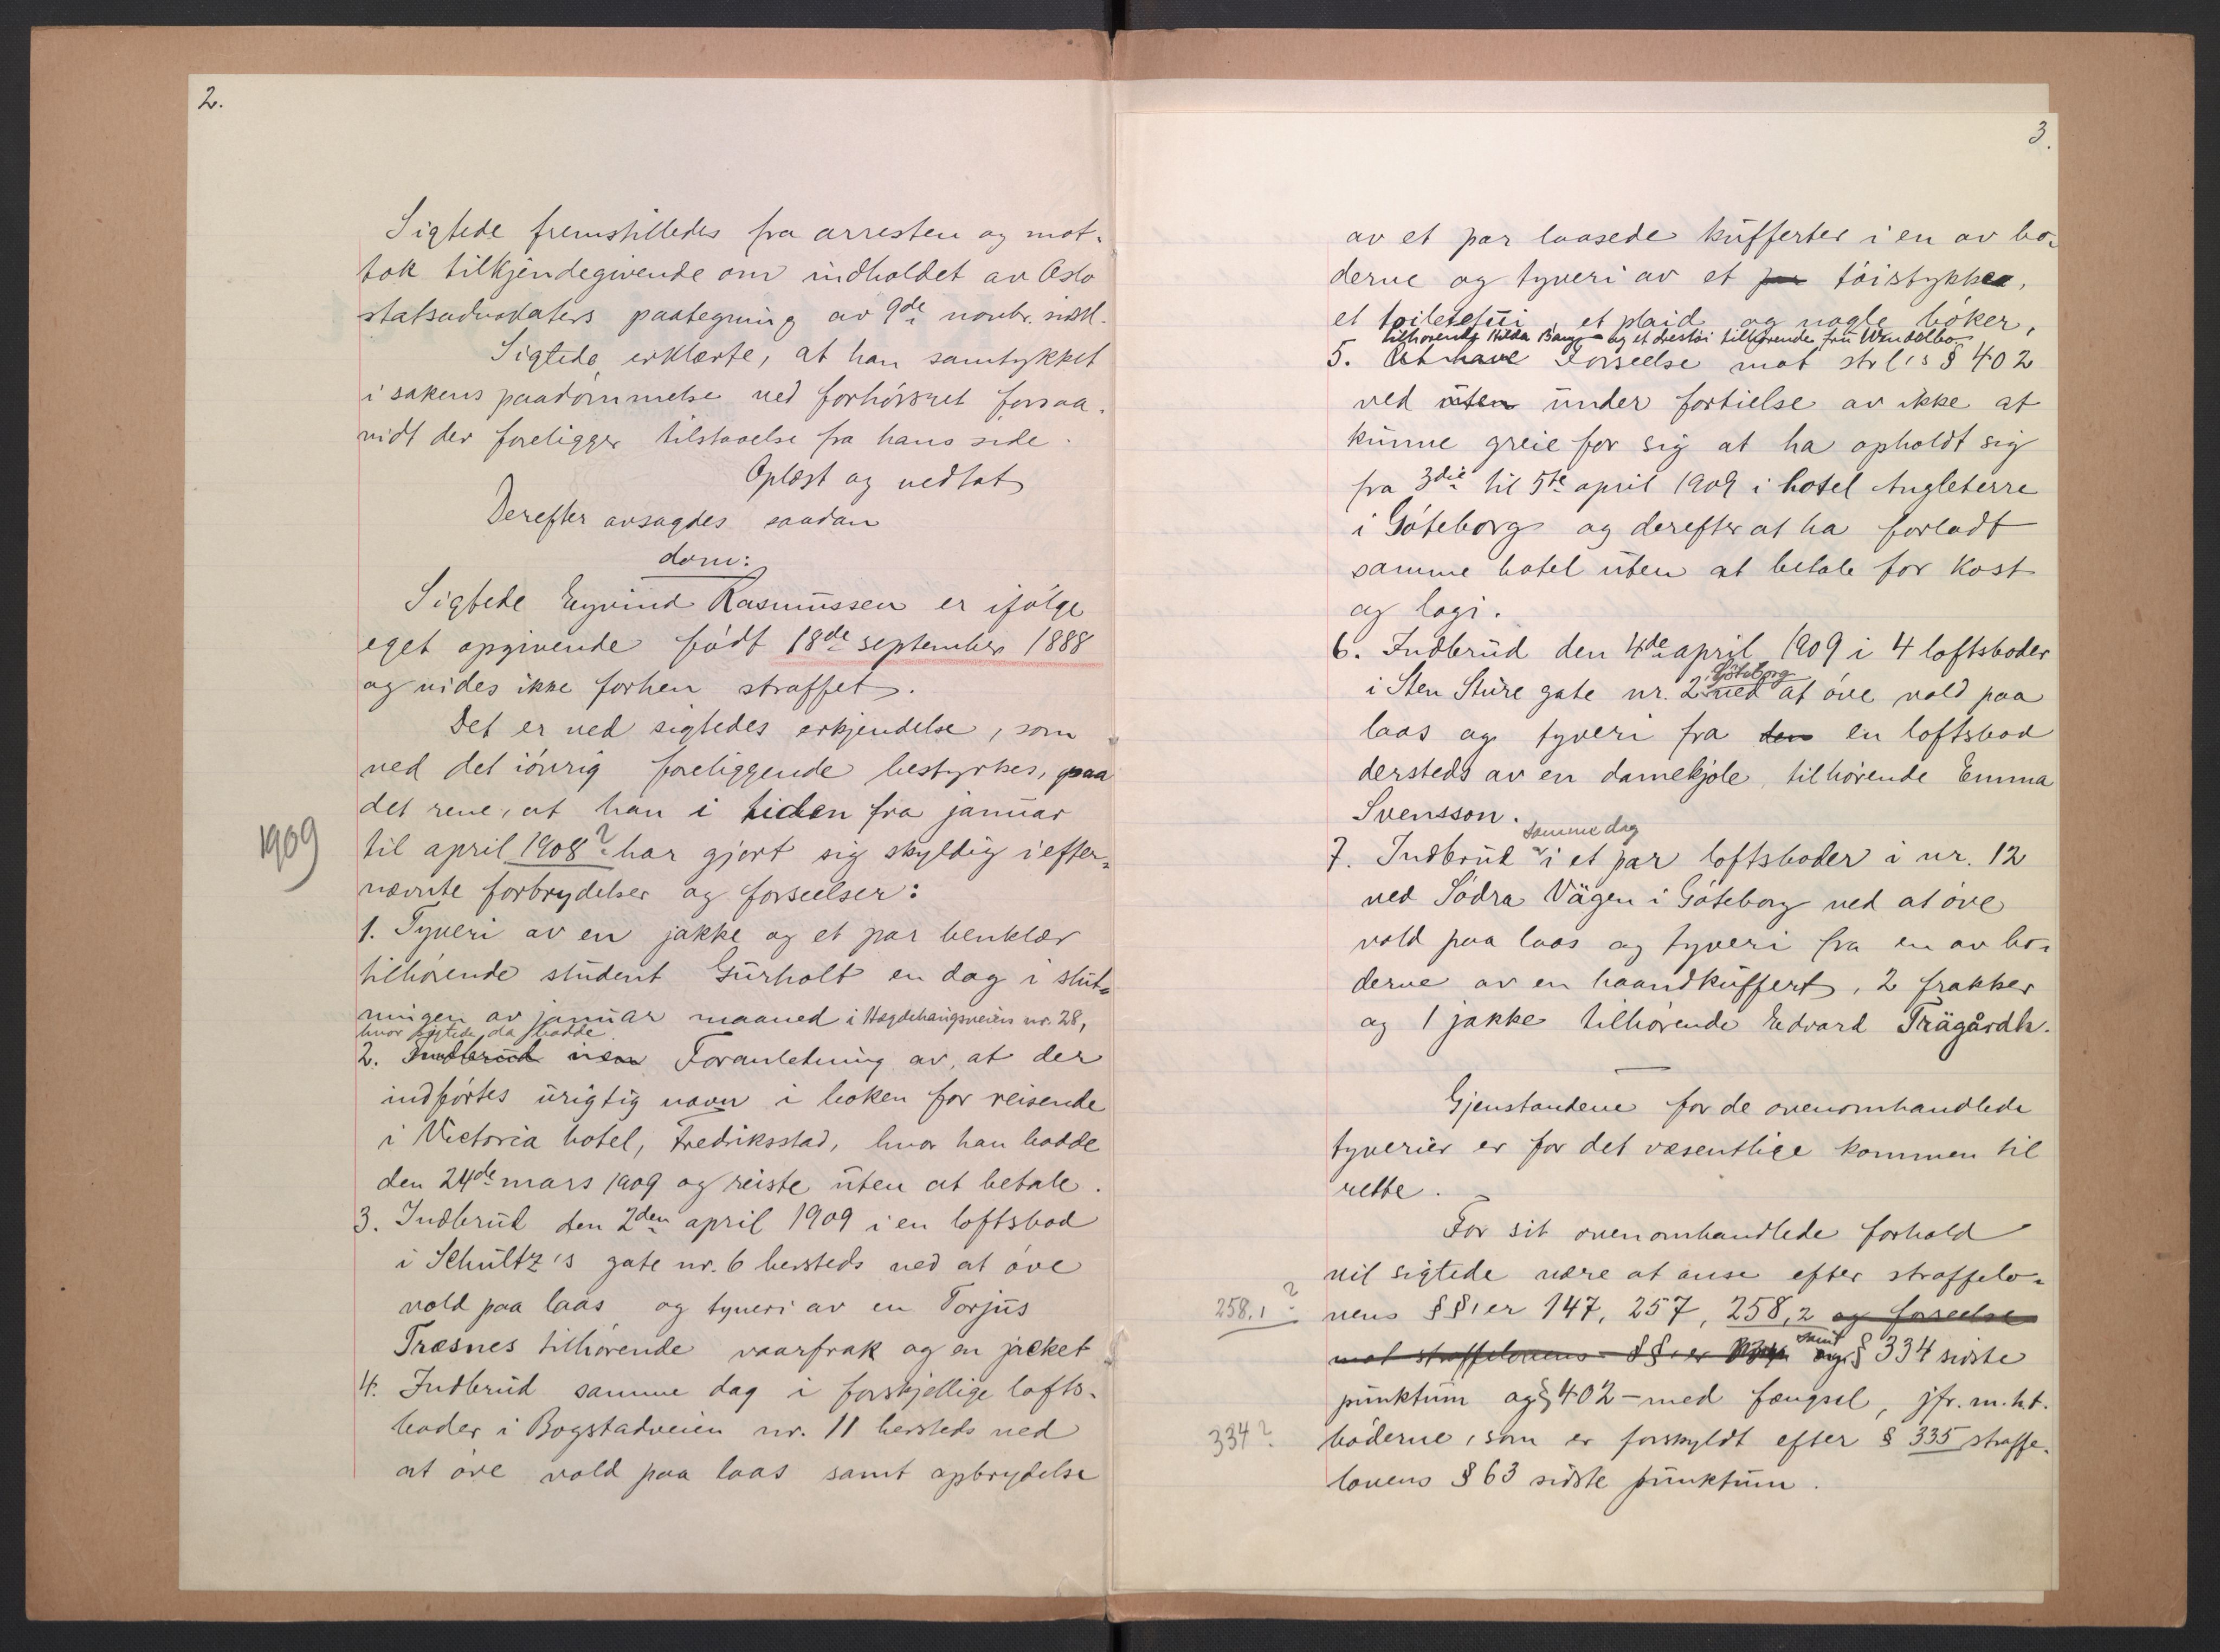 2.
Sigtede fremstilledes fra arresten og mot-
tok tilkjendegivende om indholdet av Oslo
statsadvokaters paategning av 9de novbr. sidstl.
Sigtede erklærte, at han samtykket
i sakens paadømmelse ved forhørsret forsaa-
vidt der foreligger tilstaaelse fra hans side.
Oplæst og vedtat
Derefter avsagdes saadan
dom:
Sigtede Eyvind Rasmussen er ifølge
eget opgivende født 18de september 1888
og vides ikke forhen straffet.
Det er ved sigtedes erkjendelse, som
ved det iøvrig foreliggende bestyrkes, paa
det rene, at han i tiden fra januar
1909
til april 1908? har gjort sig skyldig i efter-
nævnte forbrydelser og forseelser:
1. Tyveri av en jakke og et par benklær
tilhørende student Gurholt en dag i slut-
ningen av januar maaned i Hægdehaugsveien nr. 28,
hvor sigtede da bodde
2. Indbrud i en Foranledning av, at der
indførtes urigtig navn i boken for reisende
i Victoria hotel, Fredriksstad, hvor han bodde
den 24de mars 1909 og reiste uten at betale.
3. Indbrud den 2den april 1909 i en loftsbod
i Schultz's gate nr. 6 hersteds ved at øve
vold paa laas og tyveri av en Torjus
Træsnes tilhørende vaarfrak og en jacket
4. Indbrud samme dag i forskjellige lofts-
boder i Bogstadveien nr. 11 hersteds ved
at øve vold paa laas samt opbrydelse
3.
av et par laasede kufferter i en av bo-
derne og tyveri av et par tøistykker,
et toiletetui, et plaid og nogle bøker,
tilhørende Hilda Bang og et overtøi tilhørende fru Wendelbo
5. At have Forseelse mot strl's § 402
ved uten under fortielse av ikke at
kunne greie for sig at ha opholdt sig
fra 3die til 5te april 1909 i hotel Angleterre
i Gøteborg og derefter at ha forladt
samme hotel uten at betale for kost
og logi.
6. Indbrud den 4de april 1909 i 4 loftsboder
i Göteborg
i Sten Sture gate nr. 2 ved at øve vold paa
laas og tyveri fra den en loftsbod
dersteds av en damekjole, tilhørende Emma
Svensson.
samme dag
7. Indbrud i et par loftsboder i nr. 12
ved Södra Vägen i Gøteborg ved at øve
vold paa laas og tyveri fra en av bo-
derne av en haandkuffert, 2 frakker
og 1 jakke tilhørende Edvard Trägårdh.
Gjenstandene for de ovenomhandlede
tyverier er for det væsentlige kommen til
rette.
For sit ovenomhandlede forhold
vil sigtede være at anse efter straffelo-
258,1 ?
vens §§'er 147, 257, 258,2 og forseelse
samt
mot straffelovens §§'er og § 334 sidste
punktum og § 402 - med fængsel, jfr. m.h.t.
334?
bøderne, som er forskyldt efter § 335 straffe-
lovens § 63 sidste punktum.